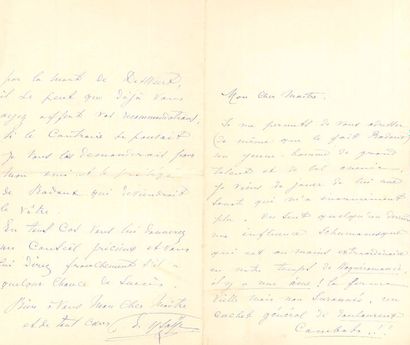 Mon cher Maître.
Je me permets de vous adresser
(de même que le fait Radoux)
un jeune homme de grand
talent et de bel avenir.
Je viens de jouer de lui une
Sonate qui m'a énormément
plu. On sent quelqu'un
une influence Schumanesque
qui est au moins extraordinaire
en notre temps de Wagnéromanie.
il y a une âme ! la forme
vieille mais non surannée, un
cachet général de douloureux
par la mort de
il se peut que déjà vous
ayez vos recommandations.
Si le Contraire se pouvait
Je vous les demanderais pour
mon ami et le protégé
de Radoux qui deviendrait
le vôtre.
En tout Cas vous lui donnerez
un Conseil précieux et vous
lui direz franchement s'il a
quelque Chance de Succès.
Bien à vous Mon Cher Maître
et de tout cœur